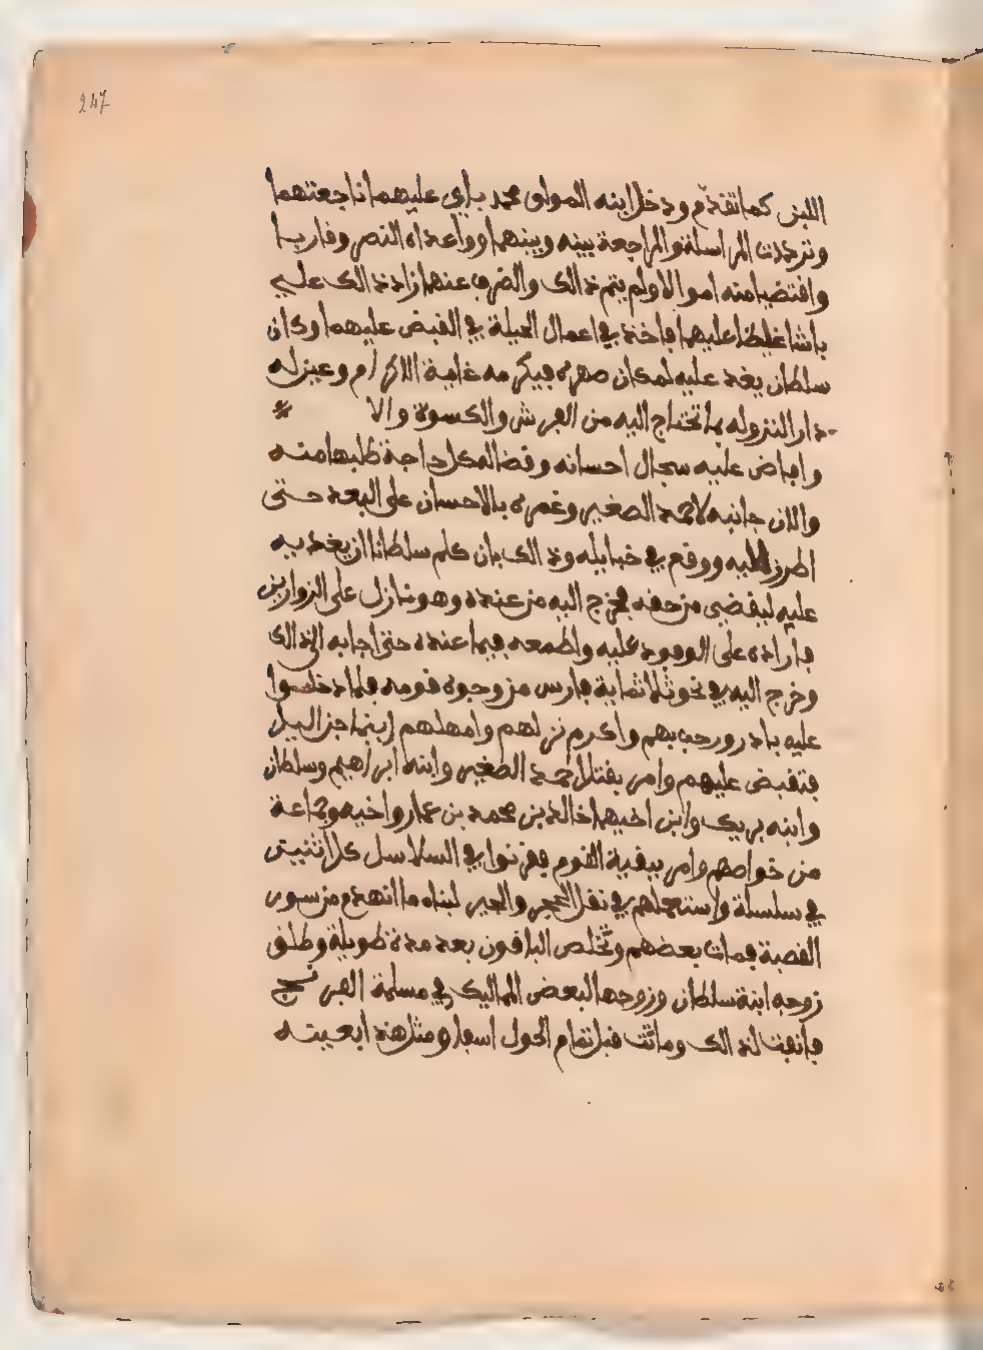 247
اللبن كما تقدم ودخل ابنه المولى محمد باي عليهما ناجعتهما
وترددت المراسلة والمراجعة بينه وبينهما وواعداه النصر وقاربا
واقتضيا منه اموالا ولم يتم ذالك والضرب عنهما زاد ذالك علي
باشا غيظا عليهما فاخذ في اعمال الحيلة في القبض عليهما وكان
سلطان يفد عليه لمكان صهره فيكرمه غاية الاكرام وعين له
دار النزوله بما تحتاج اليه من الفرش والكسوة والا
وافاض عليه سجال احسانه وقضا له كل حاجة طلبها منه
والان جانبه لاحمد الصغير وغمره بالاحسان على البعد حتى
اليه ووقع في حبايله وذالك بان كلم سلطانا ان يفد به
عليه ليقضي من حقه فخرج اليه من عنده وهو نازل على الزوارين
فاراده على الوفود عليه واطمعه فيما عنده حتى اجابه الى ذالك
وخرج اليه في نحو ثلاثماية فارس من وجوه قومه فلما دخلوا
عليه بادر ورحب بهم واكرم نزلهم وامهلهم ريثما جن اليل
فتقبض عليهم وامر بقتل احمد الصغير وابنه ابراهيم وسلطان
وابنه بريك وابن اخيهما خالد بن محمد بن عمار واخيه وجماعة
من خواصهم وامر ببقية القوم فقرنوا في السلاسل كل اثنين
في سلسلة واستعملهم في نقل الحجر والجير لبناء ما انهدم من سور
القصبة فمات بعضهم وتخلص الباقون بعد مدة طويلة وطلق
زوجه ابنة سلطان وزوجها لبعض المماليك في مسلمة الفر نسج
فانفت لذالك وماتت قبل تمام الحول اسفا ومثل هذه ابعيته